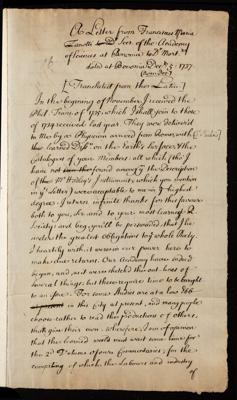 A Letter from Franciscus Maria
Zanotti Secr. of the Academy
of Sciences at Bononia to Dr. Mort.
dated at Bononia Dec. 5. 1737
[Translated from the Latin]
In the beginning of November I received the
Phil. Trans. of 1737, which I shall join to those
of 1734 received last year. They were delivered
to me by a Physician arrived from Rome, with
learned on the Earth's
Catalogue of your Members: all which
have not found among the Description
of Mr. Hadley's Instruments, which you mention
in yr. Letter) were acceptable to me in ye. highest
degree. I return infinite thanks for this favour
both to you, Sr. and to your most learned R.
Society: and beg you'll be persuaded, that I
under the greatest obligations to yr. whole Body.
I heartily wish it were in our power here to
make due returns. Our Academy have indeed
begun, and not over sketched the out-lines of
several things; but these require time to be brought
to an Issue. For some
in this City at present, and many people
choose rather to read the productions of others,
than give their own: wherefore, I am of opinion
that the learned world must wait some time for
the 2d. Volume of our Commentaries; for the
compiling of which, the Labours and industry
of